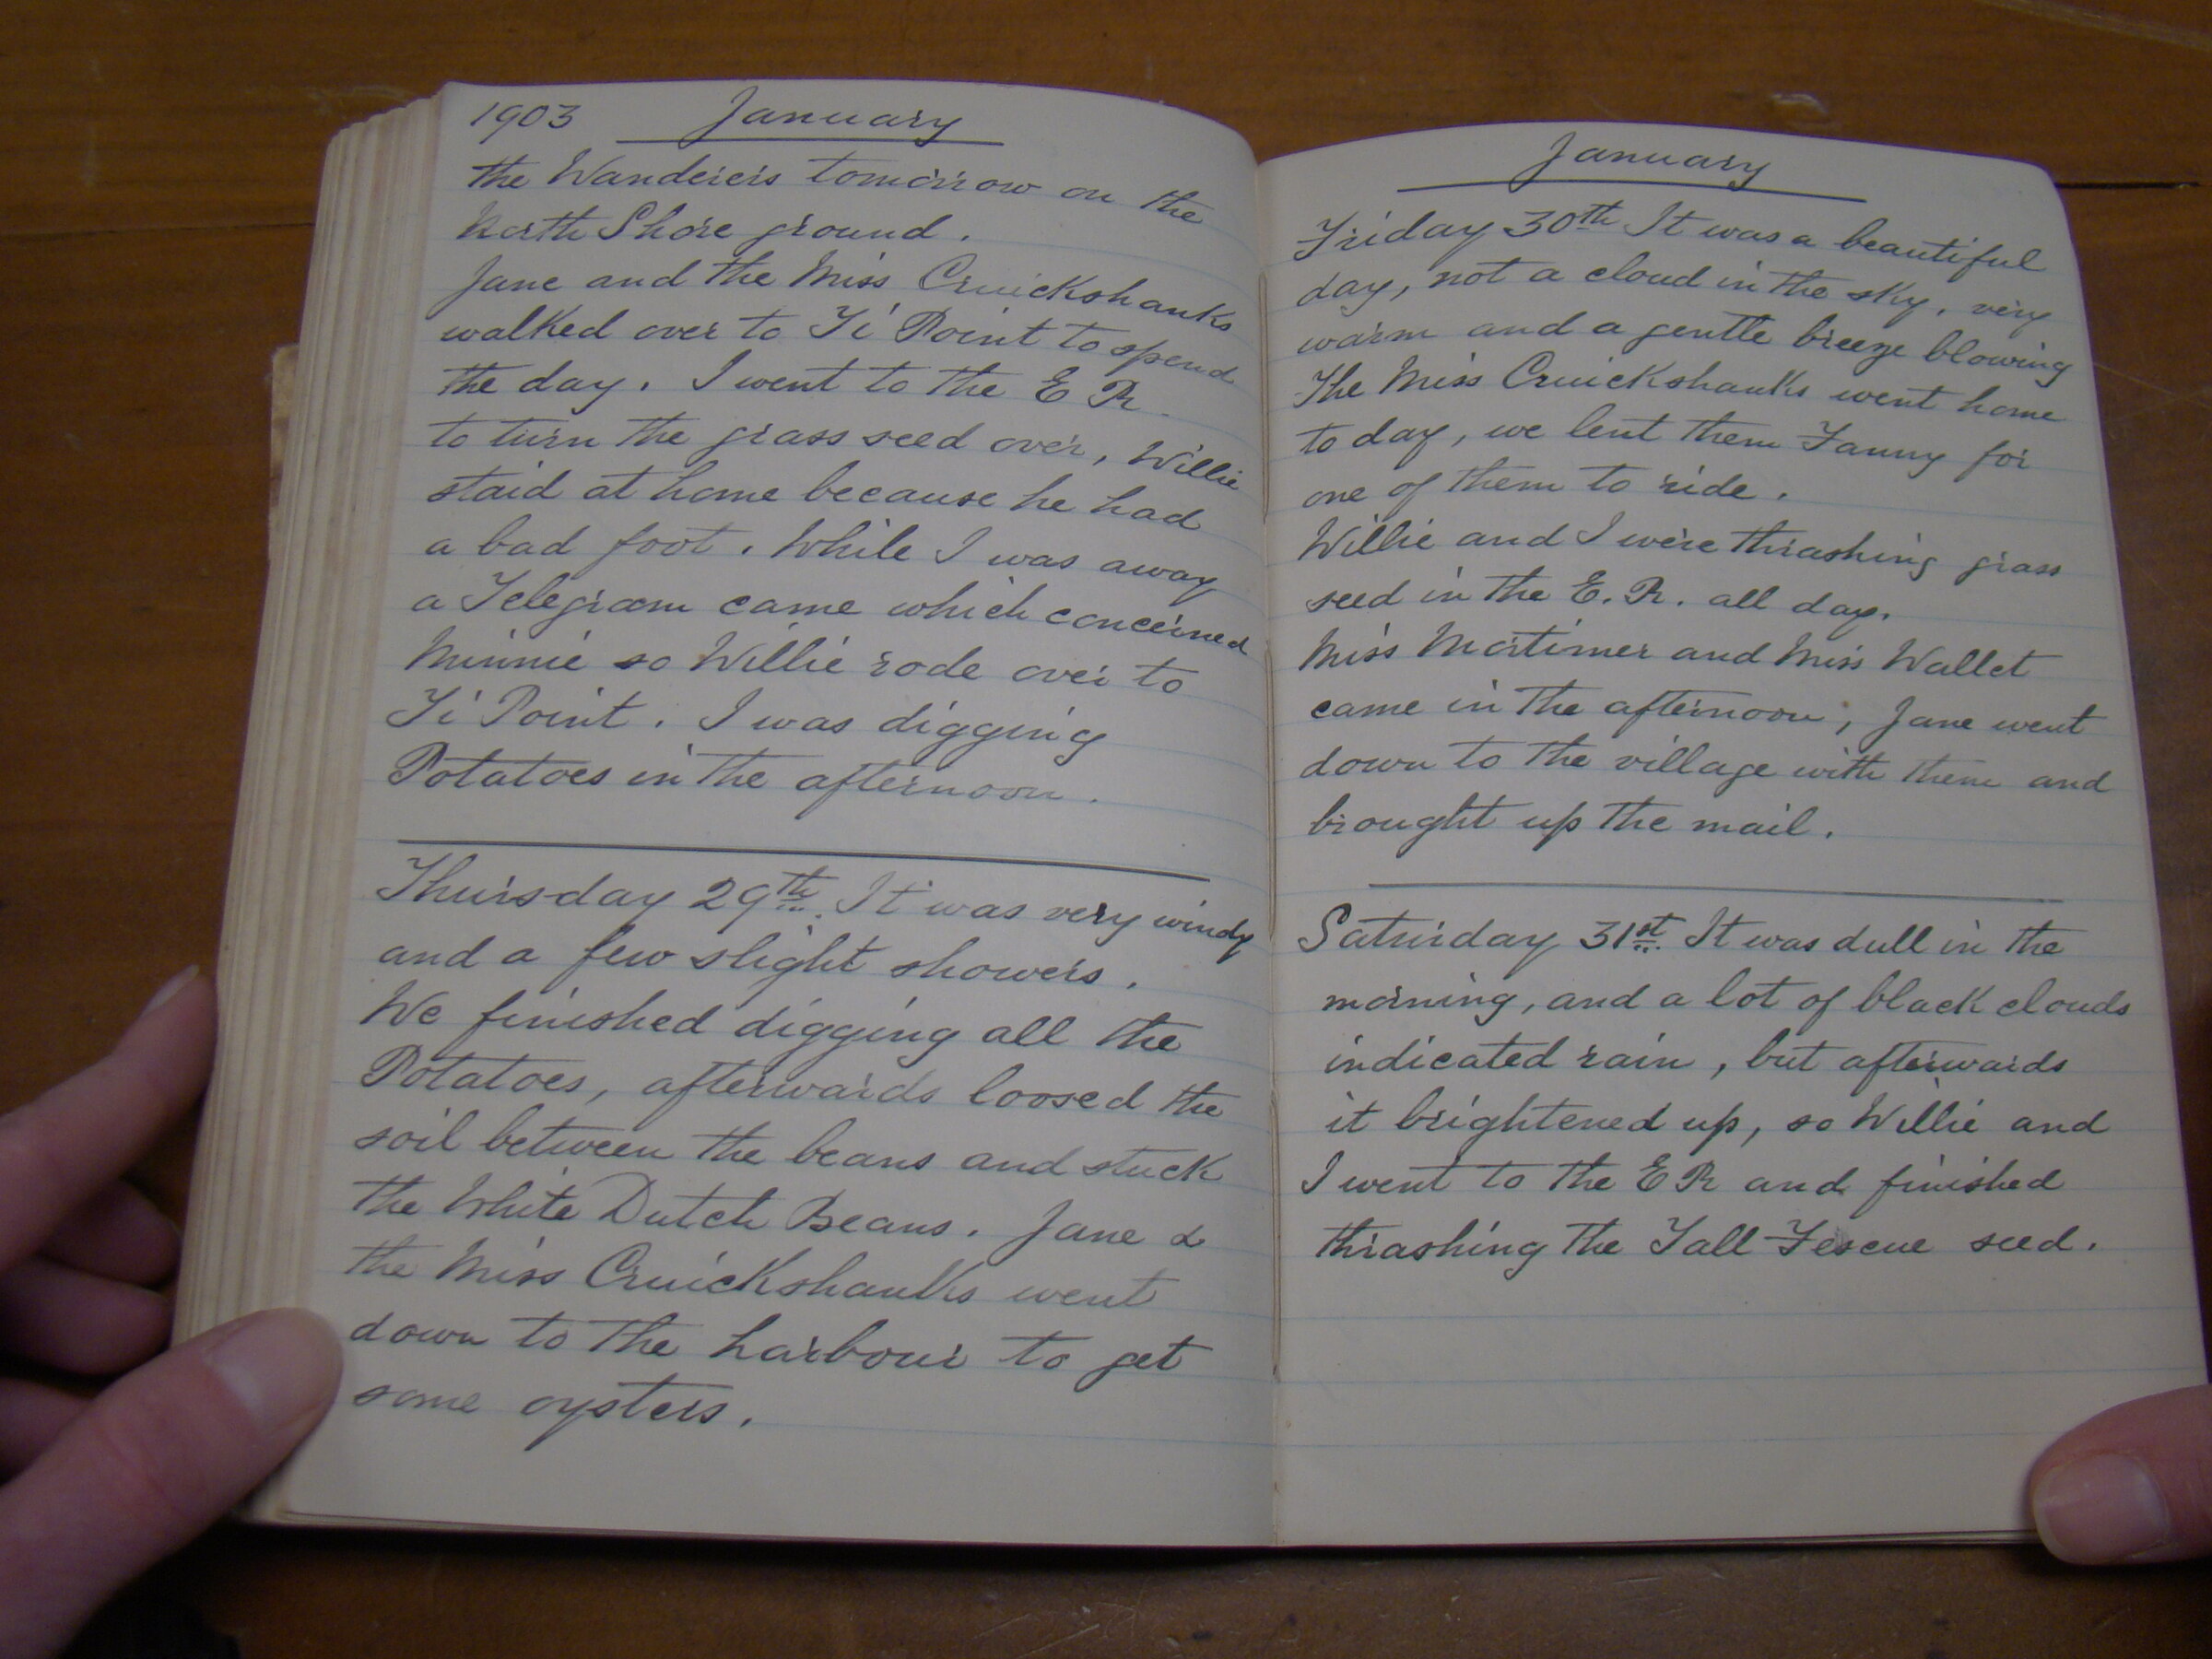 1903 January
the Wanderers tomorrow on the
North Shore ground.
Jane and the Miss Cruickshanks
walked over to Ti Point to spend
the day. I went to the E R
to turn the grass seed over, Willie
staid at home because he had
a bad foot. While I was away
a Telegram came which concerned
Minnie so Willie rode over to
Ti Point. I was digging
Potatoes in the afternoon.
Thursday 29th. It was very windy
and a few slight showers.
We finished digging all the
Potatoes, afterwards loosed the
soil between the beans and stuck
the White Dutch Beans. Jane &
the Miss Cruickshanks went
down to the harbour to get
some oysters.
January
Friday 30th It was a beautiful
day, not a cloud in the sky, very
warm and a gentle breeze blowing
The Miss Cruickshanks went home
to day, we lent them Fanny for
one of them to ride.
Willie and I were thrashing grass
seed in the E. R. all day.
Miss Mortimer and Miss Wallet
came in the afternoon, Jane went
down to the village with them and
brought up the mail.
Saturday 31st. It was dull in the
morning, and a lot of black clouds
indicated rain, but afterwards
it brightened up, so Willie and
I went to the E R and finished
thrashing the Tall Fescue seed.